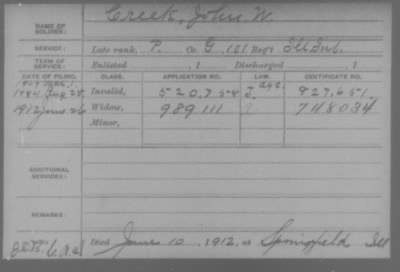 NAME OF SOLDIER: Creek, John W.
SERVICE: Late rank, P. Co. G, 101 Reg't Ill Inf.
TERM OF SERVICE: Enlisted , 1 Discharged , 1
DATE OF FILING. CLASS. APPLICATION NO. LAW. CERTIFICATE NO.
1884 Aug 28 Invalid, 520.754 J. age. 927.651.
1912 June 26 Widow, 989111 748034
Minor,
ADDITIONAL SERVICES:
REMARKS:
Died June 10, 1912, at Springfield Ill